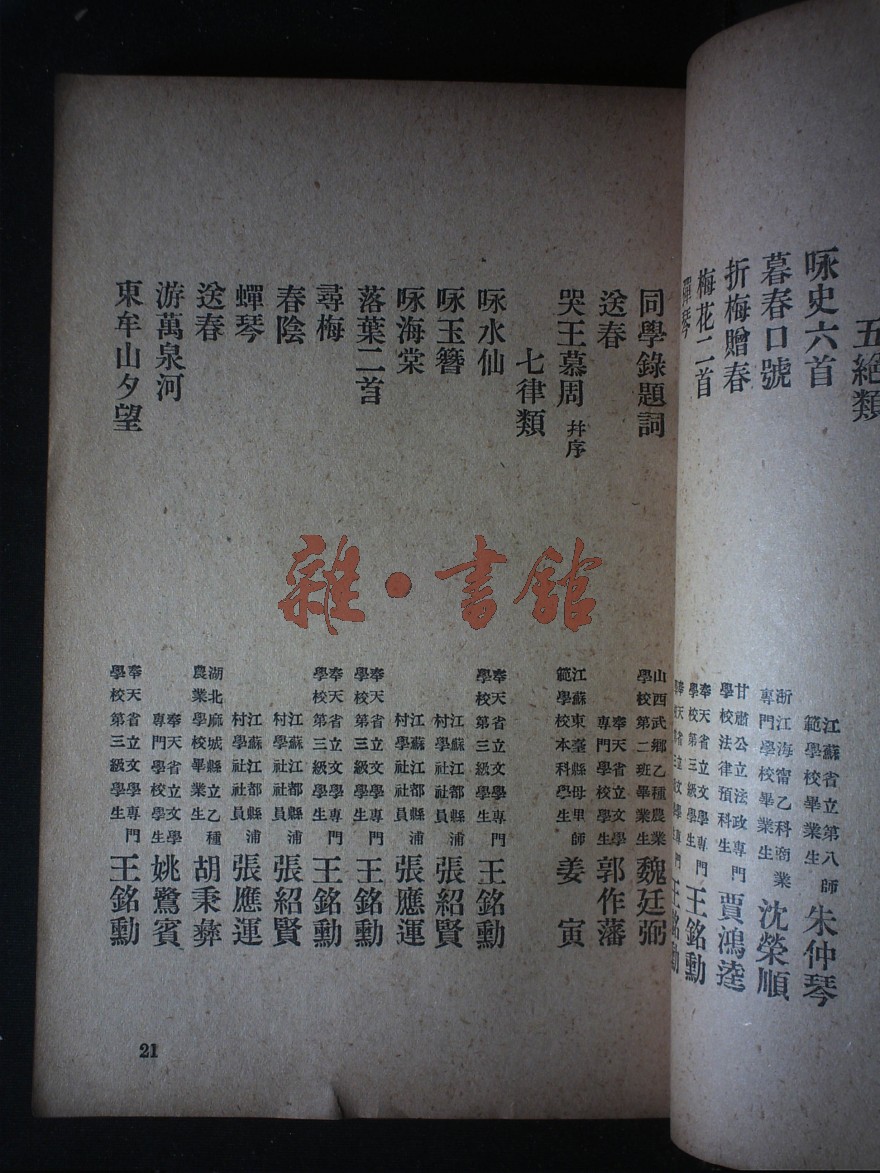 五絕類
咏史六首 江蘇省立第八師範學校畢業生 朱仲琴
暮春口號 浙江海甯乙科商業專門學校畢業生 沈榮順
折梅贈春 甘肅公立法政專門學校法律預科生 賈鴻逵
梅花二首 奉天省立文學專門學校第三級學生 王銘勳
彈琴 王銘勳
同學錄題詞 山西武鄉乙種農業學校第二班畢業生 魏廷弼
送春 奉天省立文學專門學校學生 郭作藩
哭王慕周 幷序 江蘇東臺縣母里師範學校本科學生 姜寅
七律類
咏水仙 奉天省立文學專門學校第三級學生 王銘勳
咏玉簪 江蘇江都縣浦村學社社員 張紹賢
咏海棠 江蘇江都縣浦村學社社員 張應運
落葉二首 奉天省立文學專門學校第三級學生 王銘勳
尋梅 奉天省立文學專門學校第三級學生 王銘勳
春陰 江蘇江都縣浦村學社社員 張紹賢
蟬琴 江蘇江都縣浦村學社社員 張應運
送春 湖北麻城縣立乙種農業學校畢業生 胡秉彝
游萬泉河 奉天省立文學專門學校學生 姚鷺賓
東牟山夕望 奉天省立文學專門學校第三級學生 王銘勳
21
雜·書館